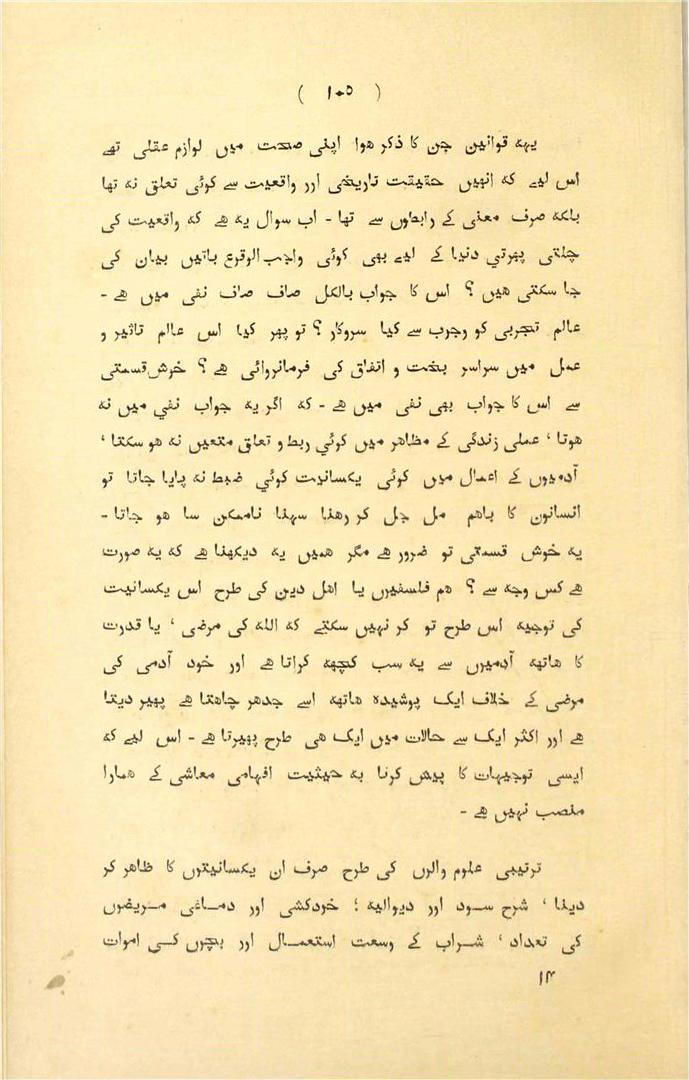 ( ۱۰۵ )
یہہ قوانین جن کا ذکر ھوا اپنی صحت میں لوازم عقلی تھے
اس لیے کہ انھیں حقیقت تاریخی اور واقعیت سے کوئی تعلق نہ تھا
بلکہ صرف معنی کے رابطوں سے تھا - اب سوال یہ ھے کہ واقعیت کی
چلتی پھرتی دنیا کے لیے بھی کوئی واجب الوقوع باتیں بیان کی
جا سکتی ھیں ؟ اس کا جواب بالکل صاف صاف نفی میں ھے -
عالم تجربی کو وجوب سے کیا سروکار ؟ تو پھر کیا اس عالم تاثیر و
عمل میں سراسر بخت و اتفاق کی فرمانروائی ھے ؟ خوش قسمتی
سے اس کا جواب بھی نفی میں ھے - کہ اگر یہ جواب نفی میں نہ
ھوتا ' عملی زندگی کے مظاھر میں کوئی ربط و تعلق متعین نہ ھو سکتا '
آدمیوں کے اعمال میں کوئی یکسانیت کوئی ضبط نہ پایا جاتا تو
انسانوں کا باھم مل جل کر رھنا سہنا ناممکن سا ھو جاتا -
یہ خوش قسمتی تو ضرور ھے مگر ھمیں یہ دیکھنا ھے کہ یہ صورت
ھے کس وجہ سے ؟ ھم فلسفیوں یا اھل دین کی طرح اس یکسانیت
کی توجیہ اس طرح تو کر نہیں سکتے کہ اللہ کی مرضی ' یا قدرت
کا ھاتھہ آدمیوں سے یہ سب کچھہ کراتا ھے اور خود آدمی کی
مرضی کے خلاف ایک پوشیدہ ھاتھہ اسے جدھر چاھتا ھے پھیر دیتا
ھے اور اکثر ایک سے حالات میں ایک ھی طرح پھیرتا ھے - اس لیے کہ
ایسی توجیہات کا پیش کرنا بہ حیثیت افہامی معاشی کے ھمارا
منصب نہیں ھے -
ترتیبی علوم والوں کی طرح صرف ان یکسانیتوں کا ظاھر کر
دینا ' شرح سود اور دیوالیہ ؛ خودکشی اور دماغی مریضوں
کی تعداد ' شراب کے وسعت استعمال اور بچوں کی اموات
۱۴